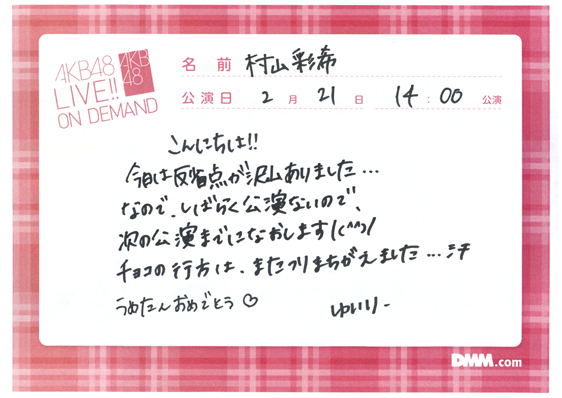 AKB48
LIVE!!
ON DEMAND
AKB
48
名前 村山彩希
公演日 2月21日 14:00 公演
こんにちは!!
今日は反省点が沢山ありました…
なので、しばらく公演ないので、
次の公演までになおします!(^^)/
チョコの行方は、またフリまちがえました…汗
うめたんおめでとう♡
ゆいりー
DMM.com